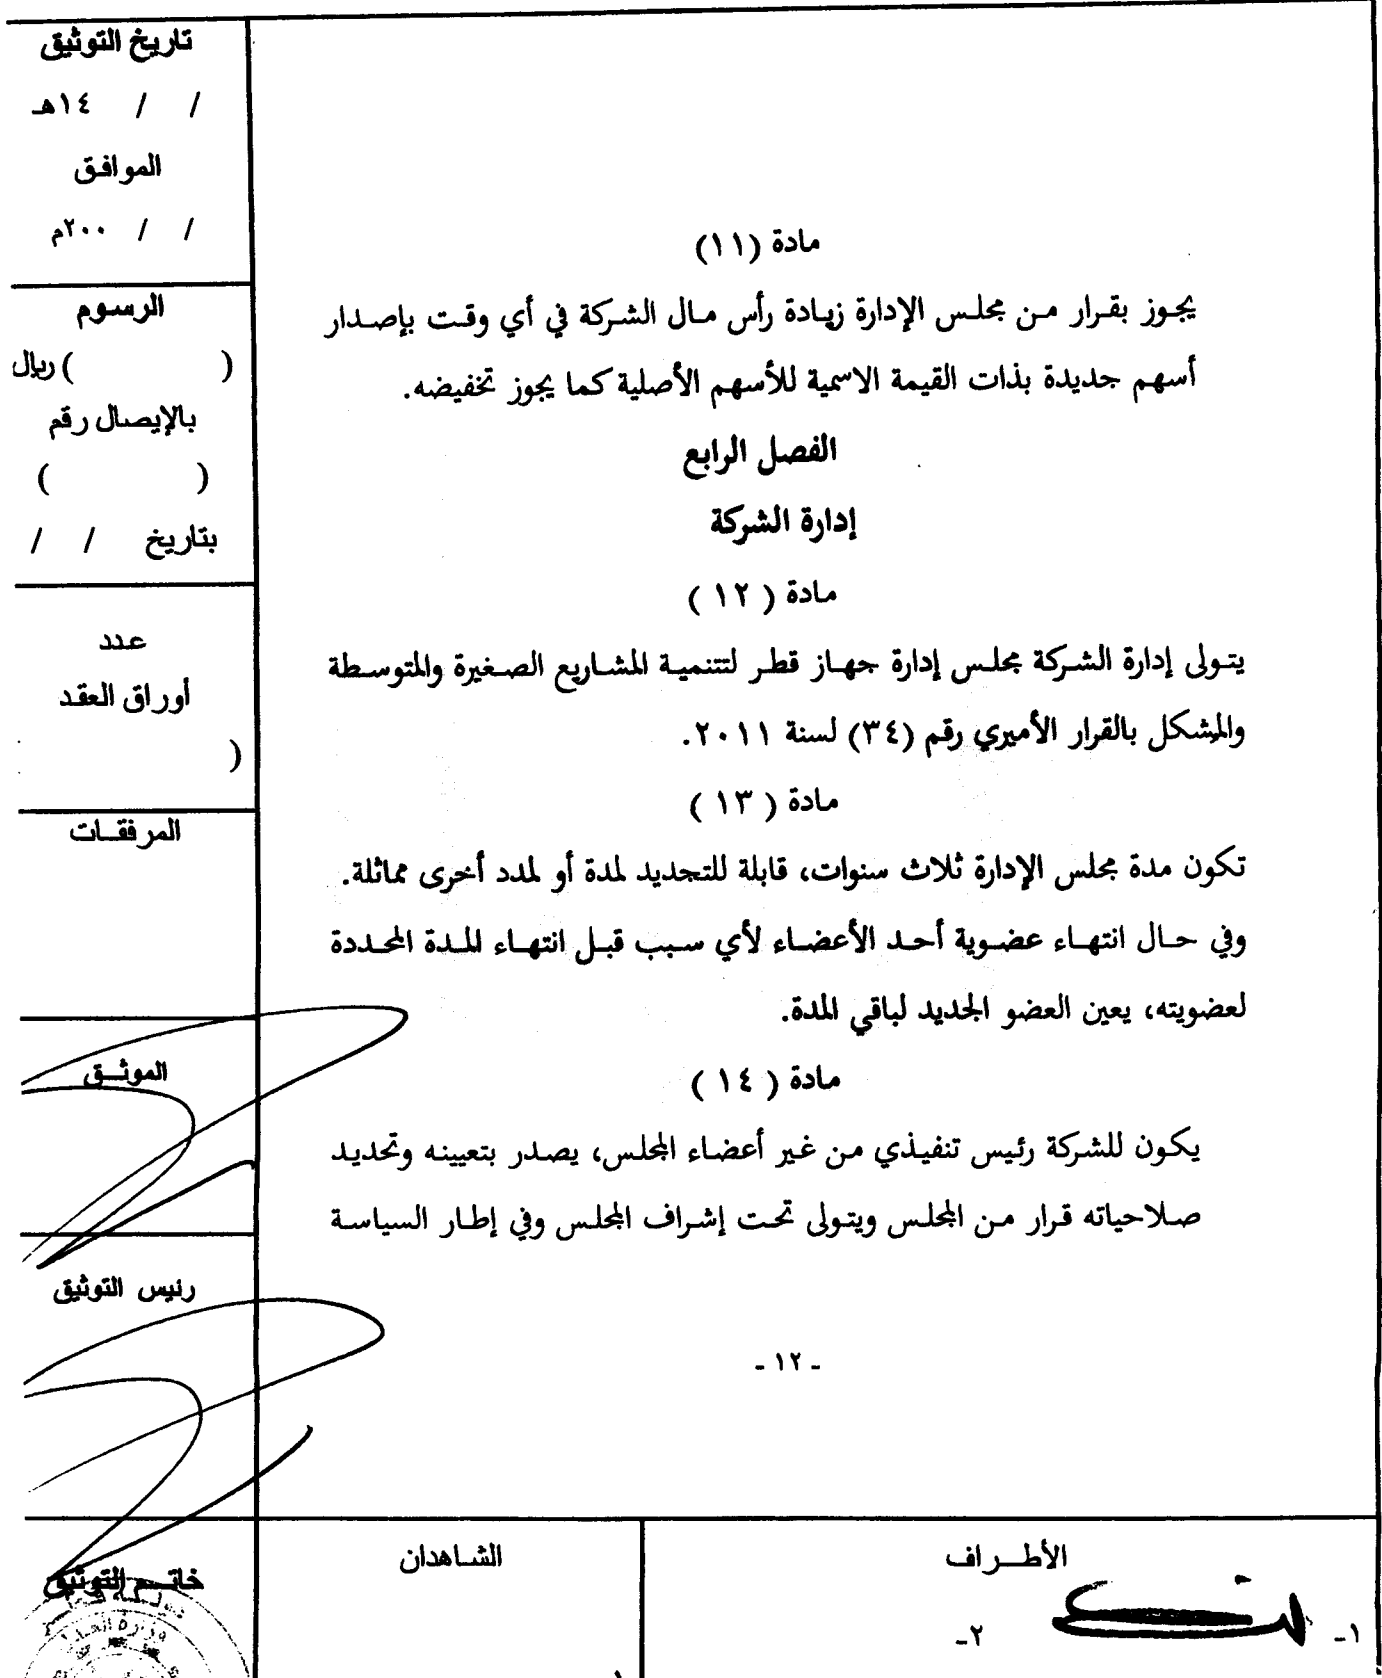 مادة (١١)
يجوز بقرار من مجلس الإدارة زيادة رأس مال الشركة في أي وقت بإصدار
أسهم جديدة بذات القيمة الاسمية للأسهم الأصلية كما يجوز تخفيضه.
الفصل الرابع
إدارة الشركة
مادة ( ١٢ )
يتولى إدارة الشركة مجلس إدارة جهاز قطر لتتنمية المشاريع الصغيرة والمتوسطة
والمشكل بالقرار الأميري رقم (٣٤) لسنة ٢٠١١.
مادة ( ١٣ )
تكون مدة مجلس الإدارة ثلاث سنوات، قابلة للتجديد لمدة أو لمدد أخرى مماثلة.
وفي حال انتهاء عضوية أحد الأعضاء لأي سبب قبل انتهاء المدة المحددة
لعضويته، يعين العضو الجديد لباقي المدة.
مادة ( ١٤ )
يكون للشركة رئيس تنفيذي من غير أعضاء المجلس، يصدر بتعيينه وتحديد
صلاحياته قرار من المجلس ويتولى تحت إشراف المجلس وفي إطار السياسة
- ١٢ -
تاريخ التوثيق
/ / ١٤هـ
الموافق
/ / ٢٠٠م
الرسوم
( ) ريال
بالإيصال رقم
( )
بتاريخ / /
عدد
أوراق العقد
(
المرفقات
الموثق
رئيس التوثيق
خاتم التوثيق
وزارة العدل
الشاهدان
الأطراف
١-
٢-